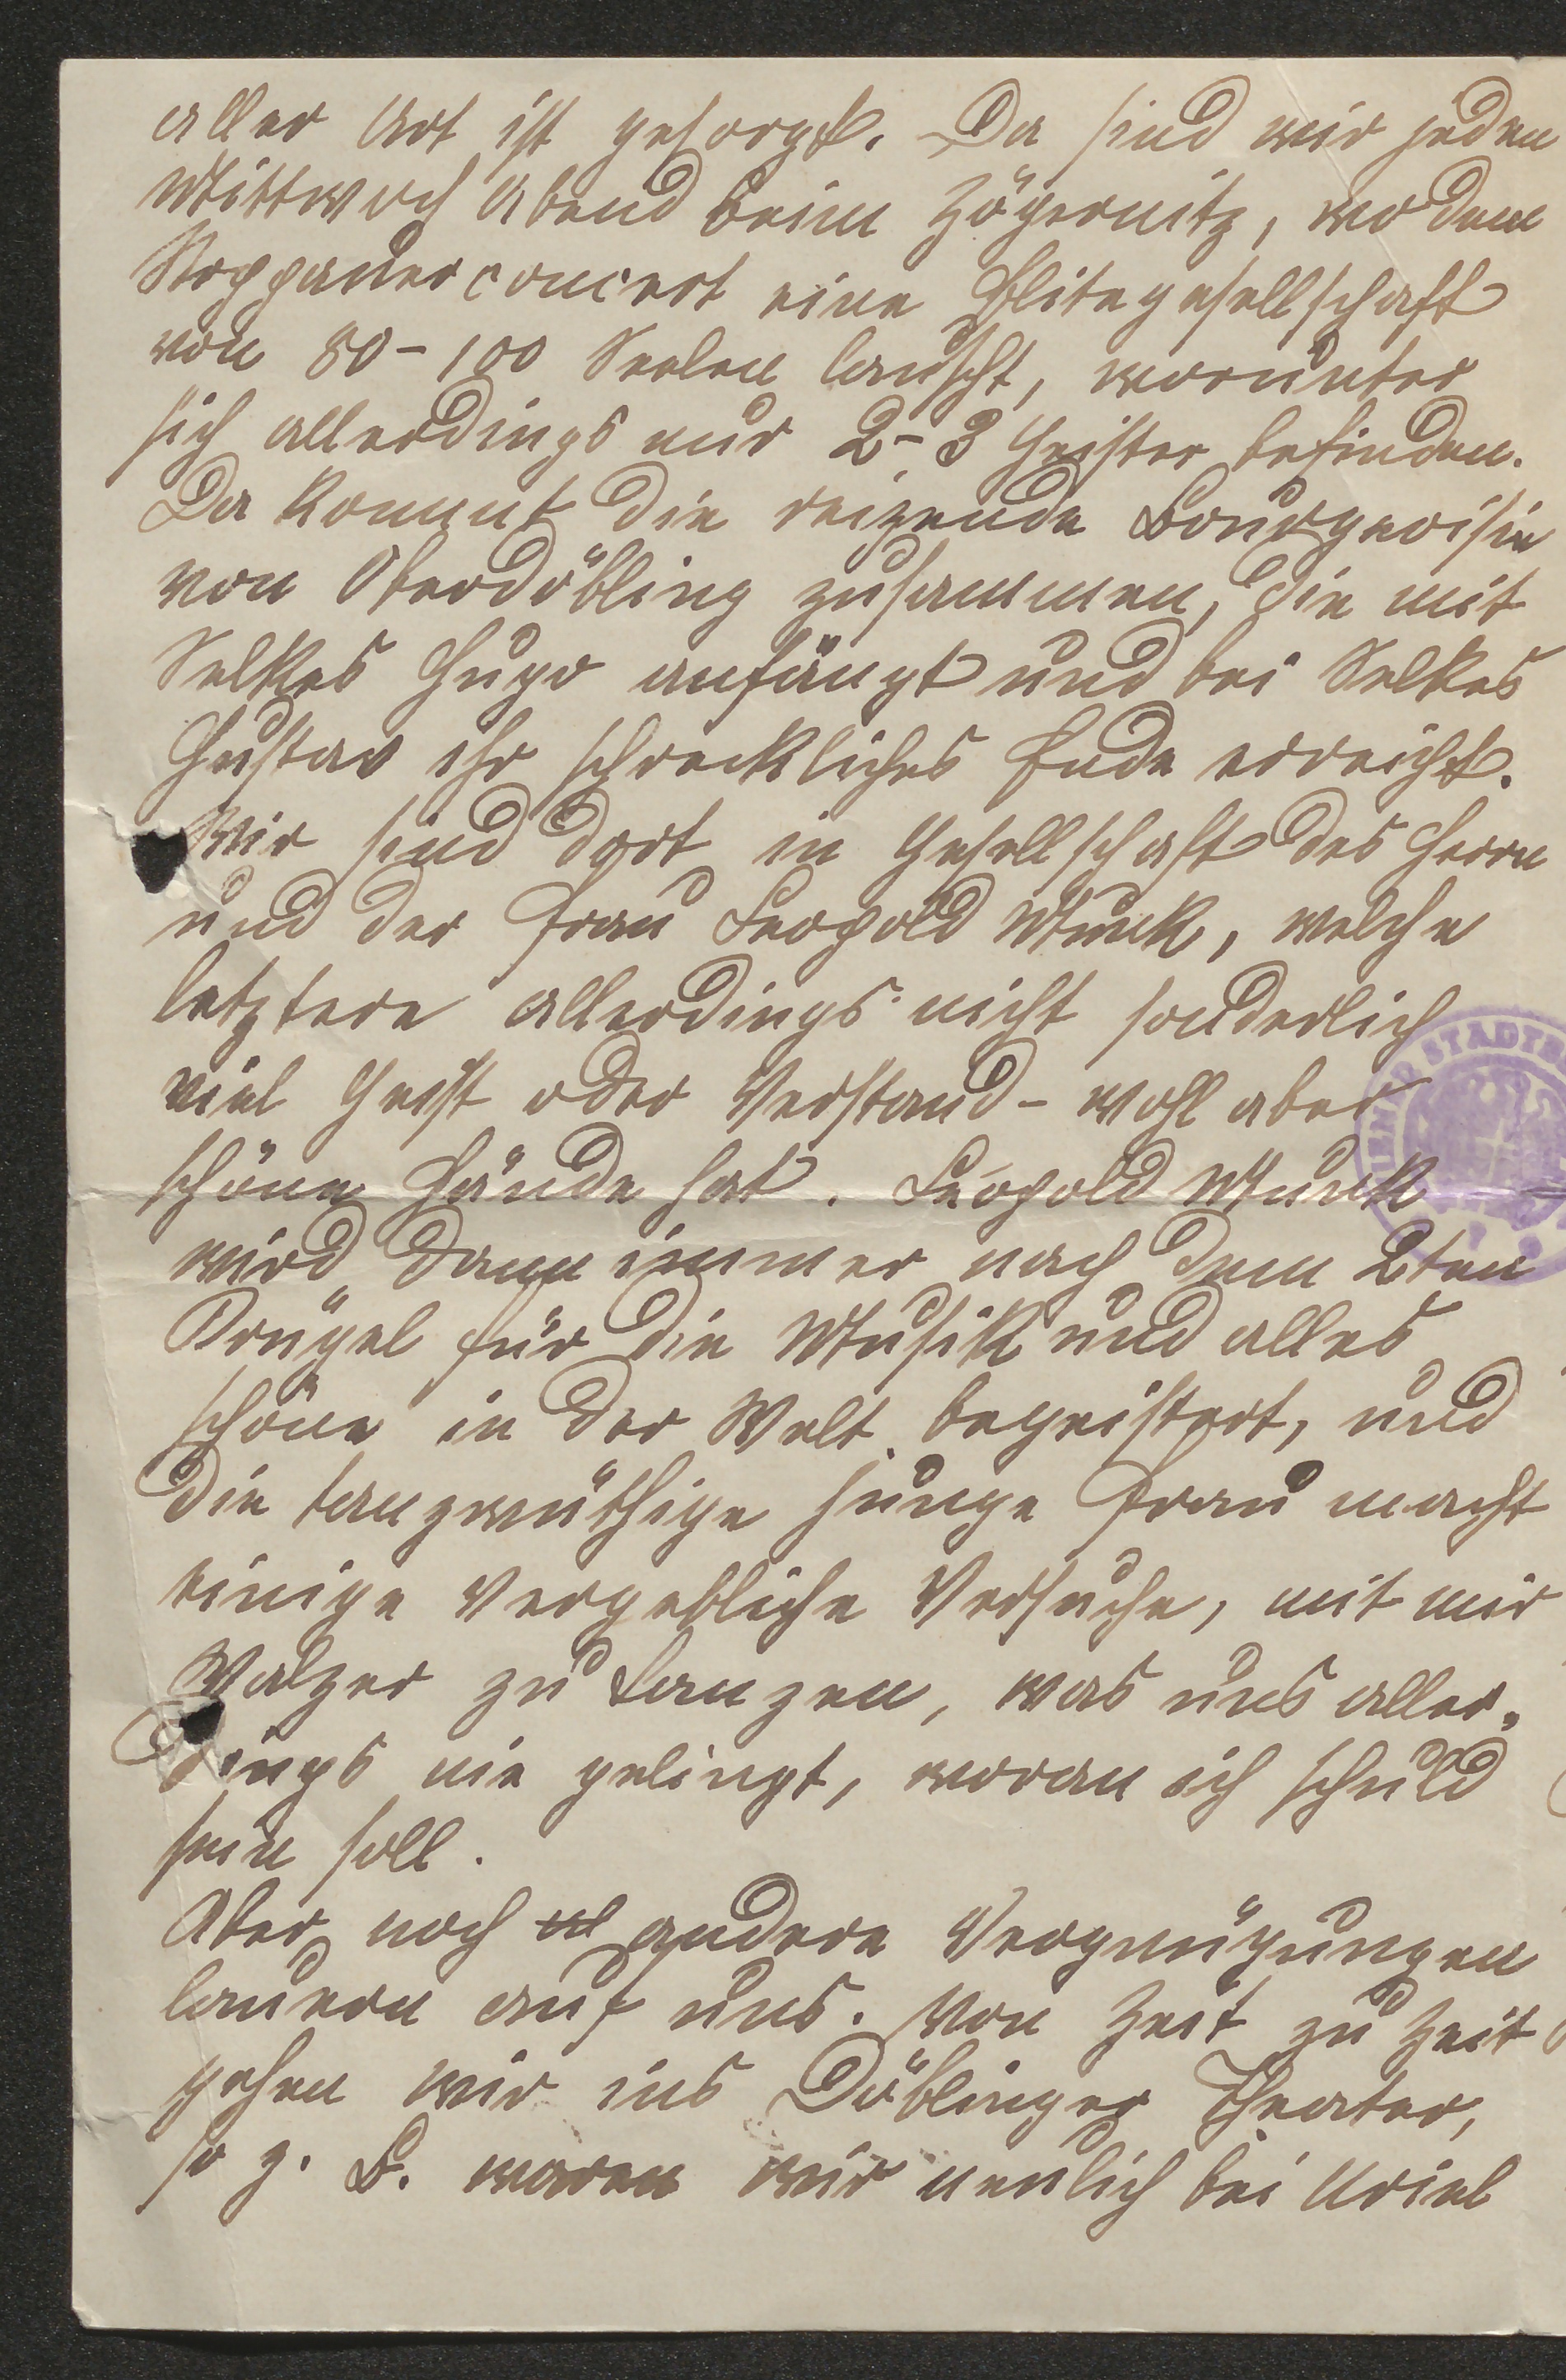 aller Art ist gesorgt. Da sind wir jeden
Mittwoch Abend beim Zögernitz, wo dem
concert eine Elitegesellschaft
von 80–100 Seelen lauscht, worunter
sich allerdings nur 2–3 Geister befinden.
Da kommt die reizende Bourgeoisie
von Oberdöbling zusammen, die mit
Selkes Hugo anfängt und bei Selkes
Gustav ihr schreckliches Ende erreicht.
Wir sind dort in Gesellschaft des Herrn
und der Frau Leopold Munk, welche
letztere allerdings nicht sonderlich
viel Geist oder Verstand – wohl aber
schöne Hände hat. Leopold Munk
wird dann immer nach dem 2ten
Krügel für die Musik und alles
schöne in der Welt begeistert, und
die tanzwüthige junge Frau macht
einige vergebliche Versuche, mit mir
Walzer zu tanzen, was uns aller-
dings nie gelingt, woran ich schuld
sein soll.
Aber noch andere Vergnügungen
lauern auf uns. Von Zeit zu Zeit
gehen wir ins Döblinger Theater,
so z. B. waren wir neulich bei Uriel
STADTB